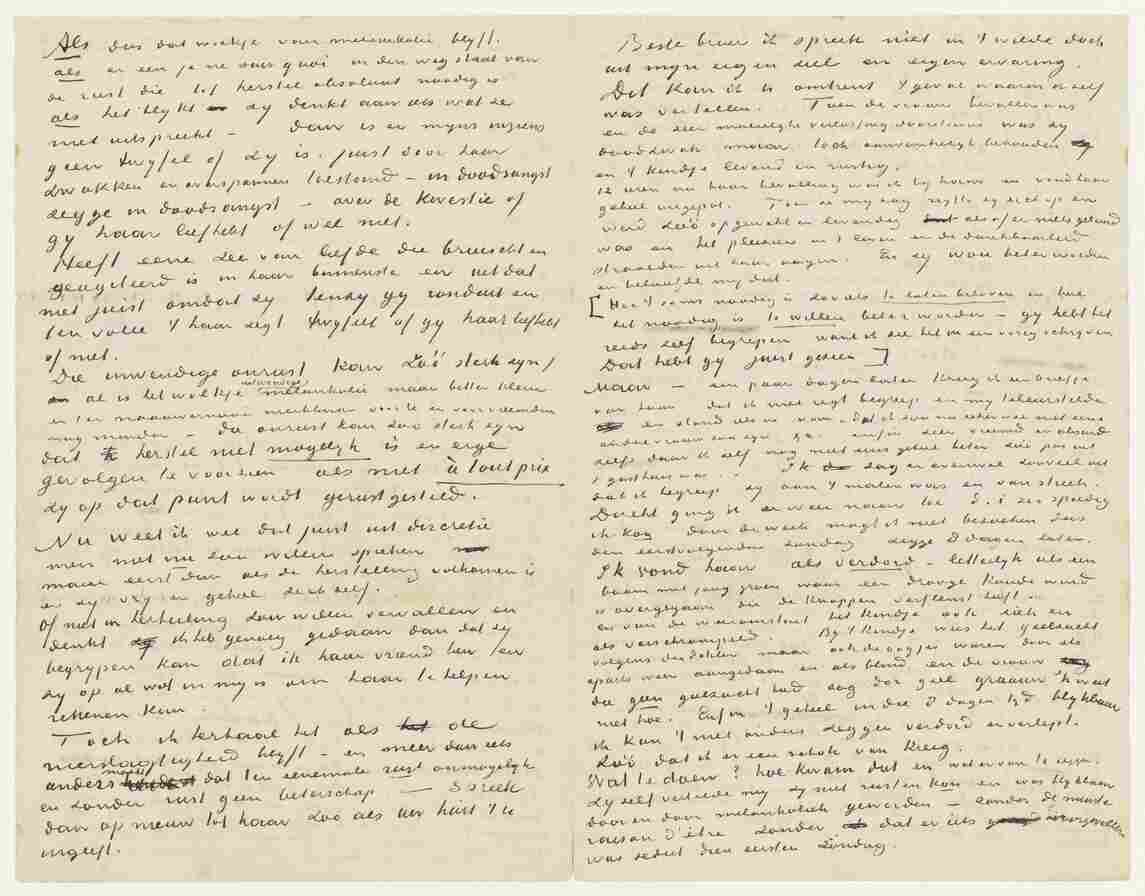 Als dus dat wolkje van melankolie blyft.
als er een je ne sais quoi in den weg staat van
de rust die tot herstel absoluut noodig is
als het blykt zy denkt aan iets wat ze
niet uitspreekt – dan is er myns inziens
geen twyfel of zy is. juist door haar
zwakken en overspannen toestand – in doodsangst
zegge in doodsangst – over de kwestie of
gy haar liefhebt of wel niet.
Heeft eene zee van liefde die bruischt en
geagiteerd is in haar binnenste en uit dat
niet juist omdat zy tenzy gy ronduit en
ten volle 't haar zegt twyfelt of gy haar liefhebt
of niet.
Die inwendige onrust kan zóó sterk zyn/
al is het wolkje uitwendige melankolie maar betrekkelyk klein
en ter nauwernood merkbaar voor te
mag – die onrust kan zóó sterk zyn
dat herstel niet mogelyk is en erge
gevolgen te voorzien als niet à tout prix
zy op dat punt wordt gerustgesteld.
Nu weet ik wel dat juist uit discretie
men niet nu zou willen spreken
maar eerst dan als de herstelling volkomen is
en zy vry en geheel zich zelf.
Of niet in herhaling zou willen vervallen en
denkt ik heb genoeg gedaan dan dat zy
begrypen kan dat ik haar vriend ben en
zy op al wat in my is om haar te helpen
rekenen kan.
Toch ik herhaal het als de
neerslagtigheid blyft – en meer dan iets
anders maakt dat ten eenenmale rust onmogelyk
en zonder rust geen beterschap – spreek
dan op nieuw tot haar zóó als uw hart 't u
ingeeft.
Beste broer ik spreek niet in 't wilde doch
uit myn eigen ziel en eigen ervaring.
Dit kan ik U omtrent 't geval waarin ik zelf
was vertellen. Toen de vrouw bevallen was
en de zeer moeielyke verlossing doorstaan was zy
doodzwak maar toch aanvankelyk behouden
en 't kindje levend en rustig.
12 uren na haar bevalling was ik by haar en vond haar
geheel uitgeput. Toen ze my zag rigtte zy zich op en
werd zóó opgewekt en levendig alsof er niets gebeurd
was en het pleizier in 't leven en de dankbaarheid
straalden uit haar oogen. En zy wou beter worden
en beloofde my dat.
[Hoe 't soms noodig is zoo iets te laten beloven en hoe
het noodig is te willen beter worden – gy hebt het
reeds zelf begrepen want ik zie het in een vorig schryven
Dat hebt gy juist gezien]
Maar – een paar dagen later kreeg ik een briefje
van haar dat ik niet regt begreep en my teleurstelde
en stond iets in van. dat ik zou met eene
andere vrouw zou zyn, enfin zeer vreemd en absurd
zelfs daar ik zelf nog niet eens geheel beter zie pas uit
't gasthuis was. Ik zag er evenwel zooveel uit
dat ik begreep zy aan 't malen was en van streek.
Direkt ging ik er weer naar toe d.i. zoo spoedig
ik kon door de week mogt ik niet bezoeken dus
den eerstvolgenden zondag zegge 8 dagen later.
Ik vond haar als verdord – letterlyk als een
boom met jong groen waar een drooge koude wind
is overgegaan die de knoppen verflenst heeft
en van de weeromstuit het kindje ook ziek en
als verschrompeld. By 't kindje was het geelzucht
volgens den dokter maar ook de oogjes waren door iets
aparts weer aangedaan en als blind en de vrouw
die geen geelzucht had zag dor geel graauw 'k weet
niet hoe. Enfin 't geheel in die 8 dagen tyd blykbaar
ik kan 't niet anders zeggen verdord en verlept.
Zóó dat ik er een schok van kreeg.
Wat te doen? hoe kwam dat en wat ervan te zyn.
Zy zelf vertelde my zy niet rusten kon en was blykbaar
door en door melankoliek geworden – zonder de minste
raison d'être zonder dat er iets voorgevallen
was sedert dien eersten Zondag.